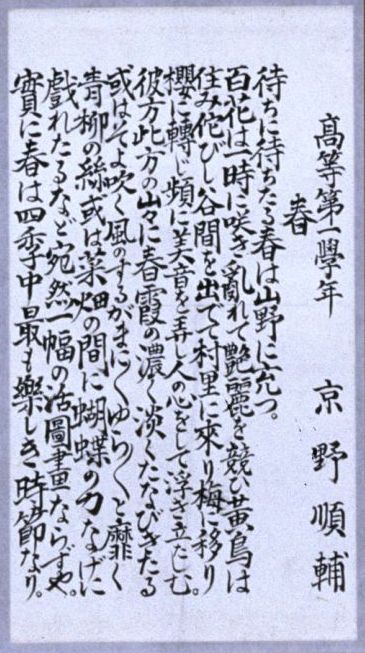 高等第一學年　京野順輔
春
待ちに待ちたる春は山野に充つ。
百花は一時に咲き亂れて艶麗を競ひ黄鳥は
住み佗びし谷間を出でて村里に來り梅に移り
櫻に轉じ頻に美音を弄し人の心をして浮き立たしむ。
彼方此方の山々に春霞の濃く淡くたなびきたる
或はそよ吹く風のするがまにまにゆらゆらと靡く
青柳の絲或は菜畑の間に蝴蝶の力なげに
戲れたるなど宛然一幅の活圖畫ならずや。
實に春は四季中最も樂しき時節なり。